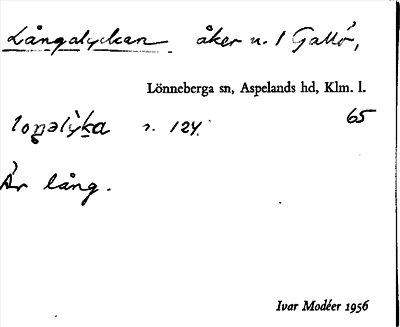 Långalyckan åker n. 1 Gallö,
Lönneberga sn, Aspelands hd, Klm. l.
loŋalỳka s. 124. 65
Är lång.
Ivar Modéer 1956